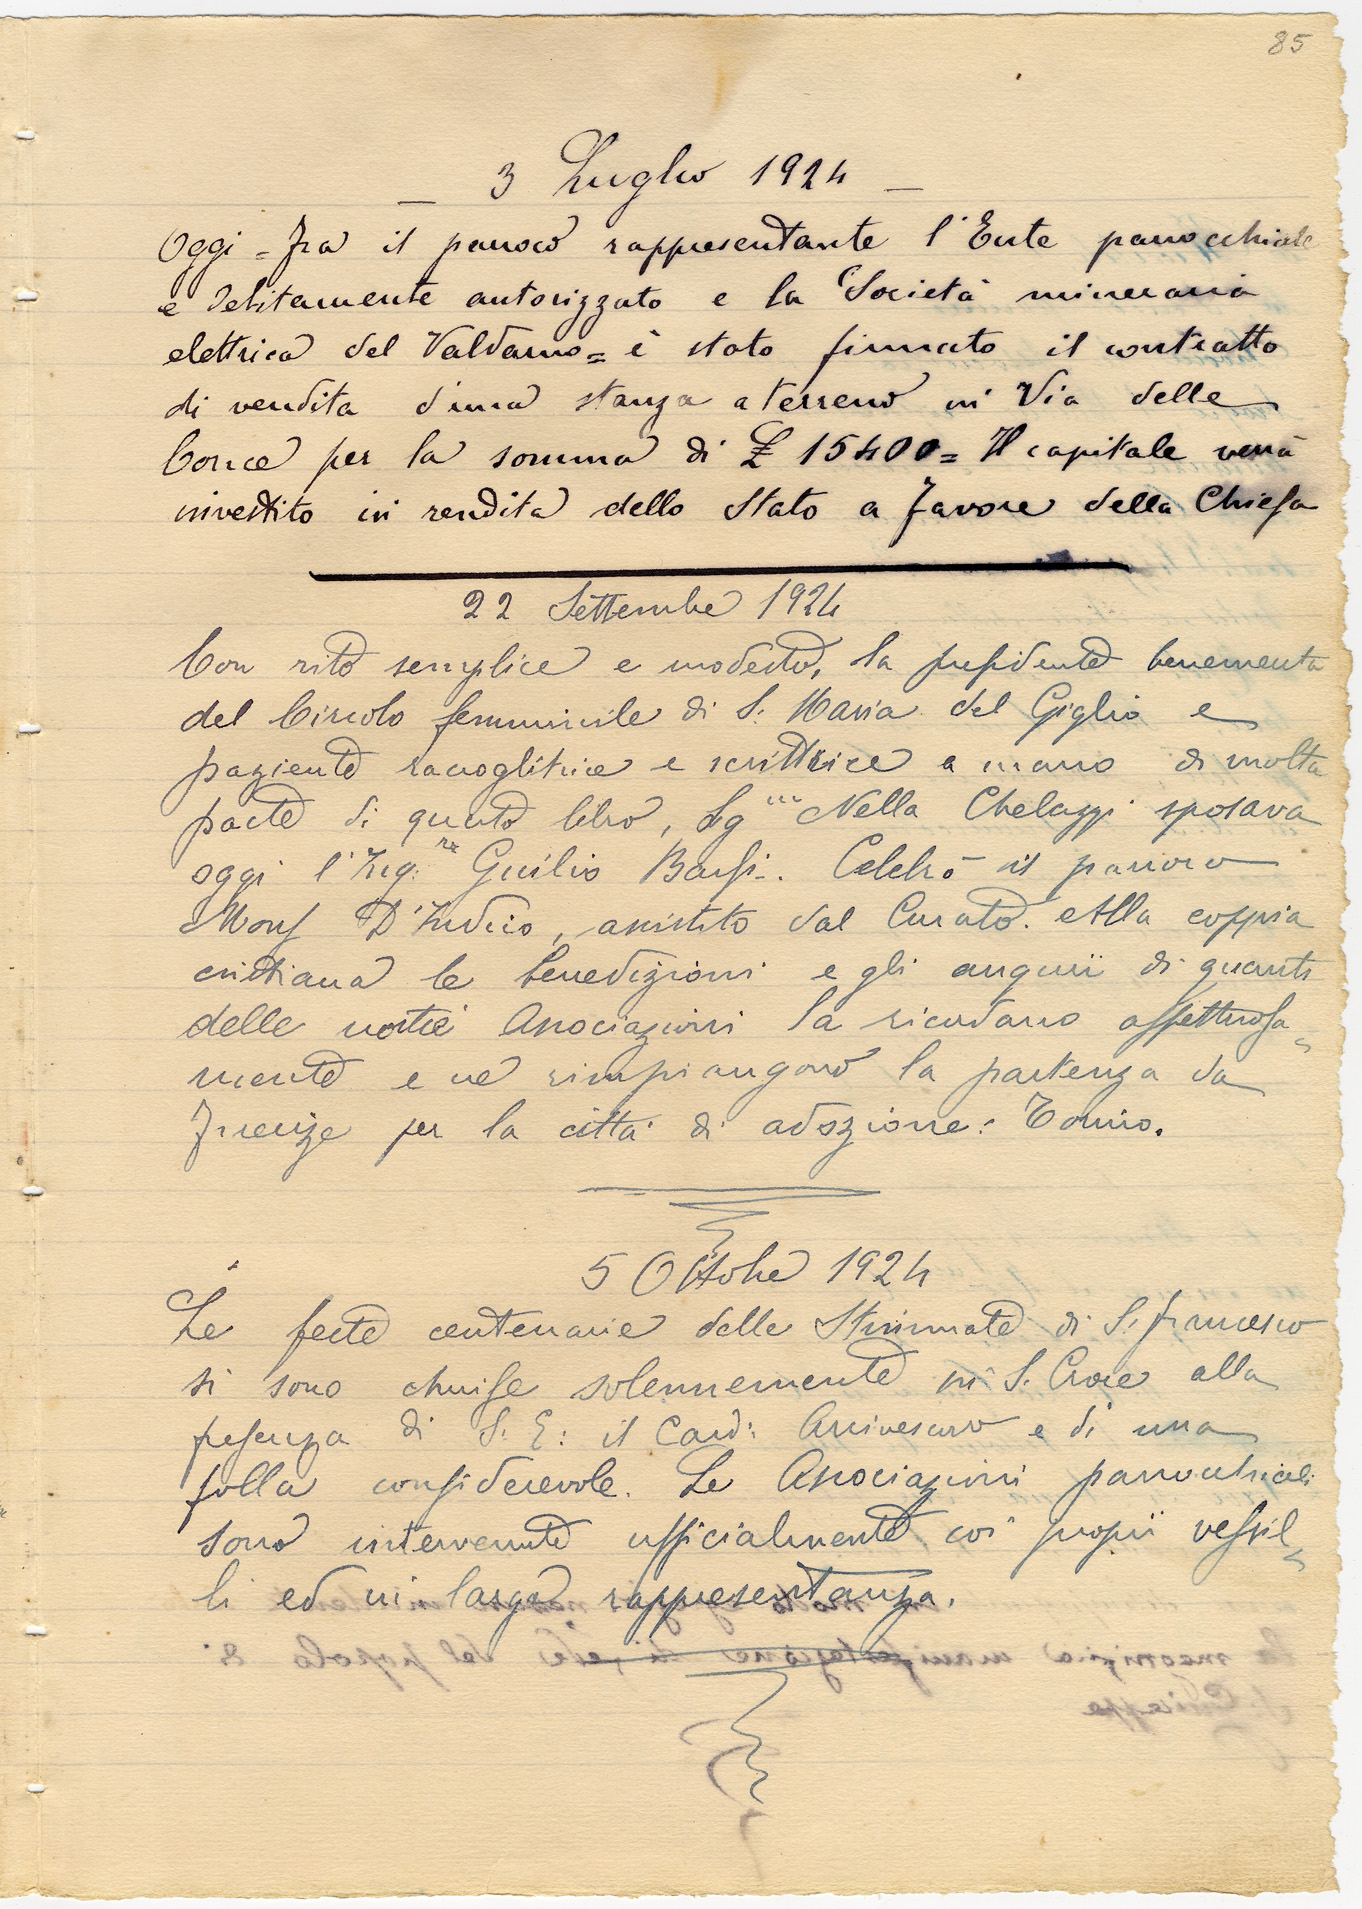 85
3 Luglio 1924 _
Oggi = fra il parroco rappresentante l'Ente parrocchiale
e debitamente autorizzato e la Società mineraria
elettrica del Valdarno = è stato firmato il contratto
di vendita d'una stanza a terreno in Via delle
Conce per la somma di £ 15400 = Il capitale verrà
investito in rendita dello Stato a favore della Chiesa
22 Settembre 1924
Con rito semplice e modesto, la presidente benemerita
del Circolo femminile di S. Maria del Giglio e
paziente raccoglitrice e scrittrice a mano di molta
parte di questo libro, Sg.na Nella Chelazzi sposava
oggi l'Ing.re Guilio Barsi. Celebrò il parroco
Mons D'Indico, assistito dal Curato. Alla coppia
cristiana le benedizioni e gli augurii di quanti
delle nostre Associazioni la ricordano affettuosa=
mente e ne rimpiangono la partenza da
Firenze per la città di adozione: Torino.
5 Ottobre 1924
Le feste centenarie delle Stimmate di S. Francesco
si sono chiuse solennemente in S. Croce alla
presenza di S. E: il Card: Arcivescovo e di una
folla considerevole. Le Associazioni parrocchiali
sono intervenute ufficialmente coi proprii vessil=
li ed in larga rappresentanza.